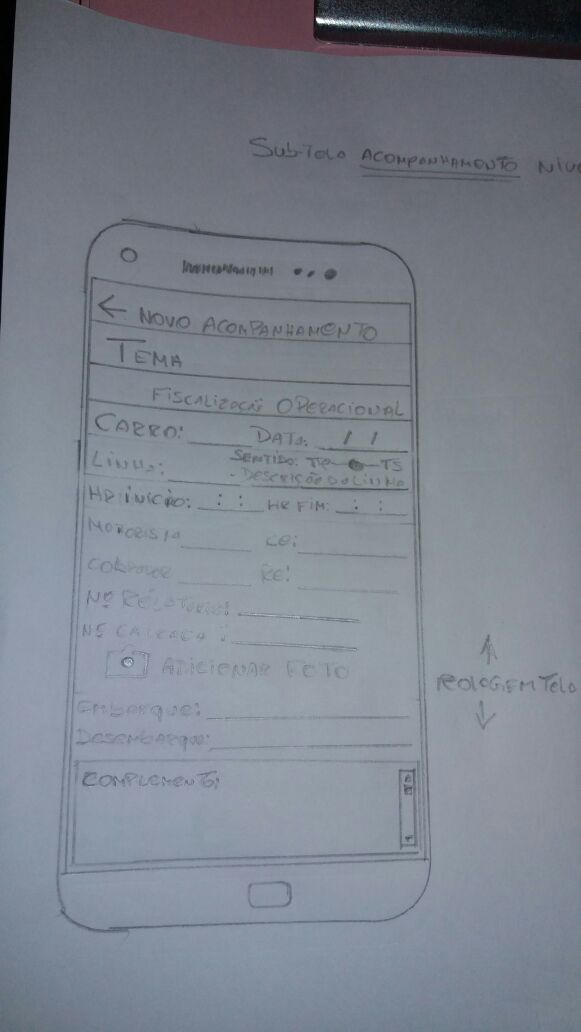 Sub-Tela ACOMPANHAMENTO
← NOVO ACOMPANHAMENTO
TEMA
FISCALIZAÇÃO OPERACIONAL
CARRO: DATA: / /
LINHA: SENTIDO: TP TS
- DESCRIÇÃO DA LINHA
HR INÍCIO: : : HR FIM: : :
MOTORISTA RE:
COBRADOR RE:
Nº RELATORIO:
Nº CATRACA:
ADICIONAR FOTO
ROLAGEM TELA
EMBARQUE:
DESEMBARQUE:
COMPLEMENTO: